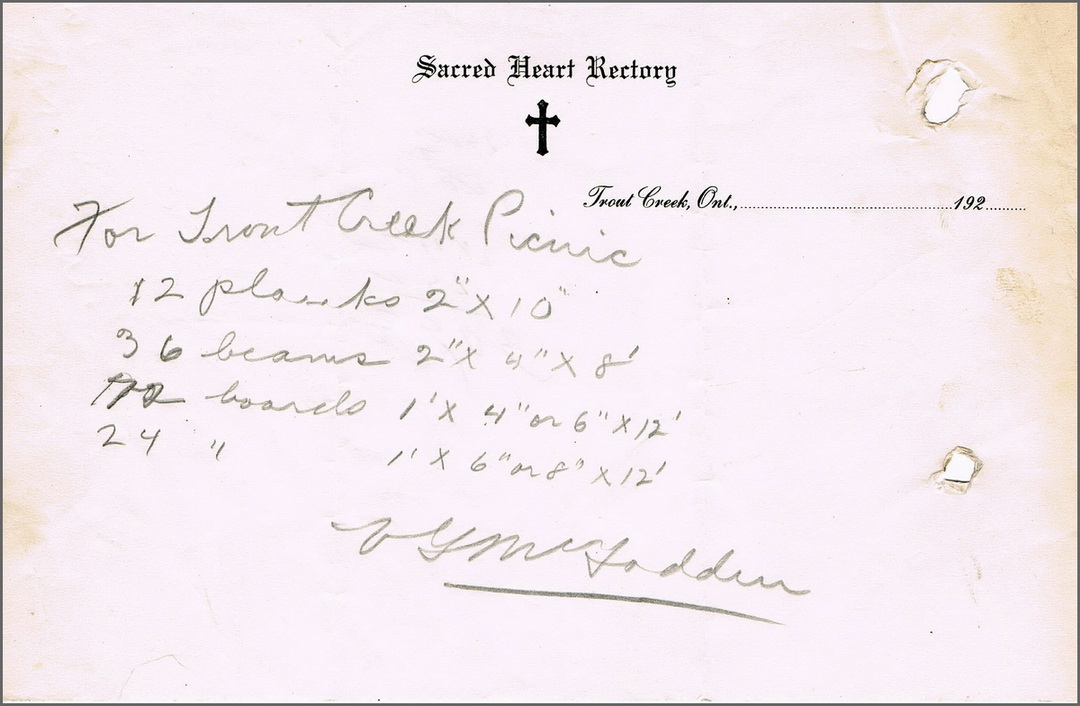 Sacred Heart Rectory
Trout Creek, Ont.,..........192......
For Trout Creek Picnic
12 planks 2" X 10"
36 beams 2" X 4" X 8'
boards 1' X 4" or 6" X 12'
24 " 1' X 6" or 8" X 12'
McFadden